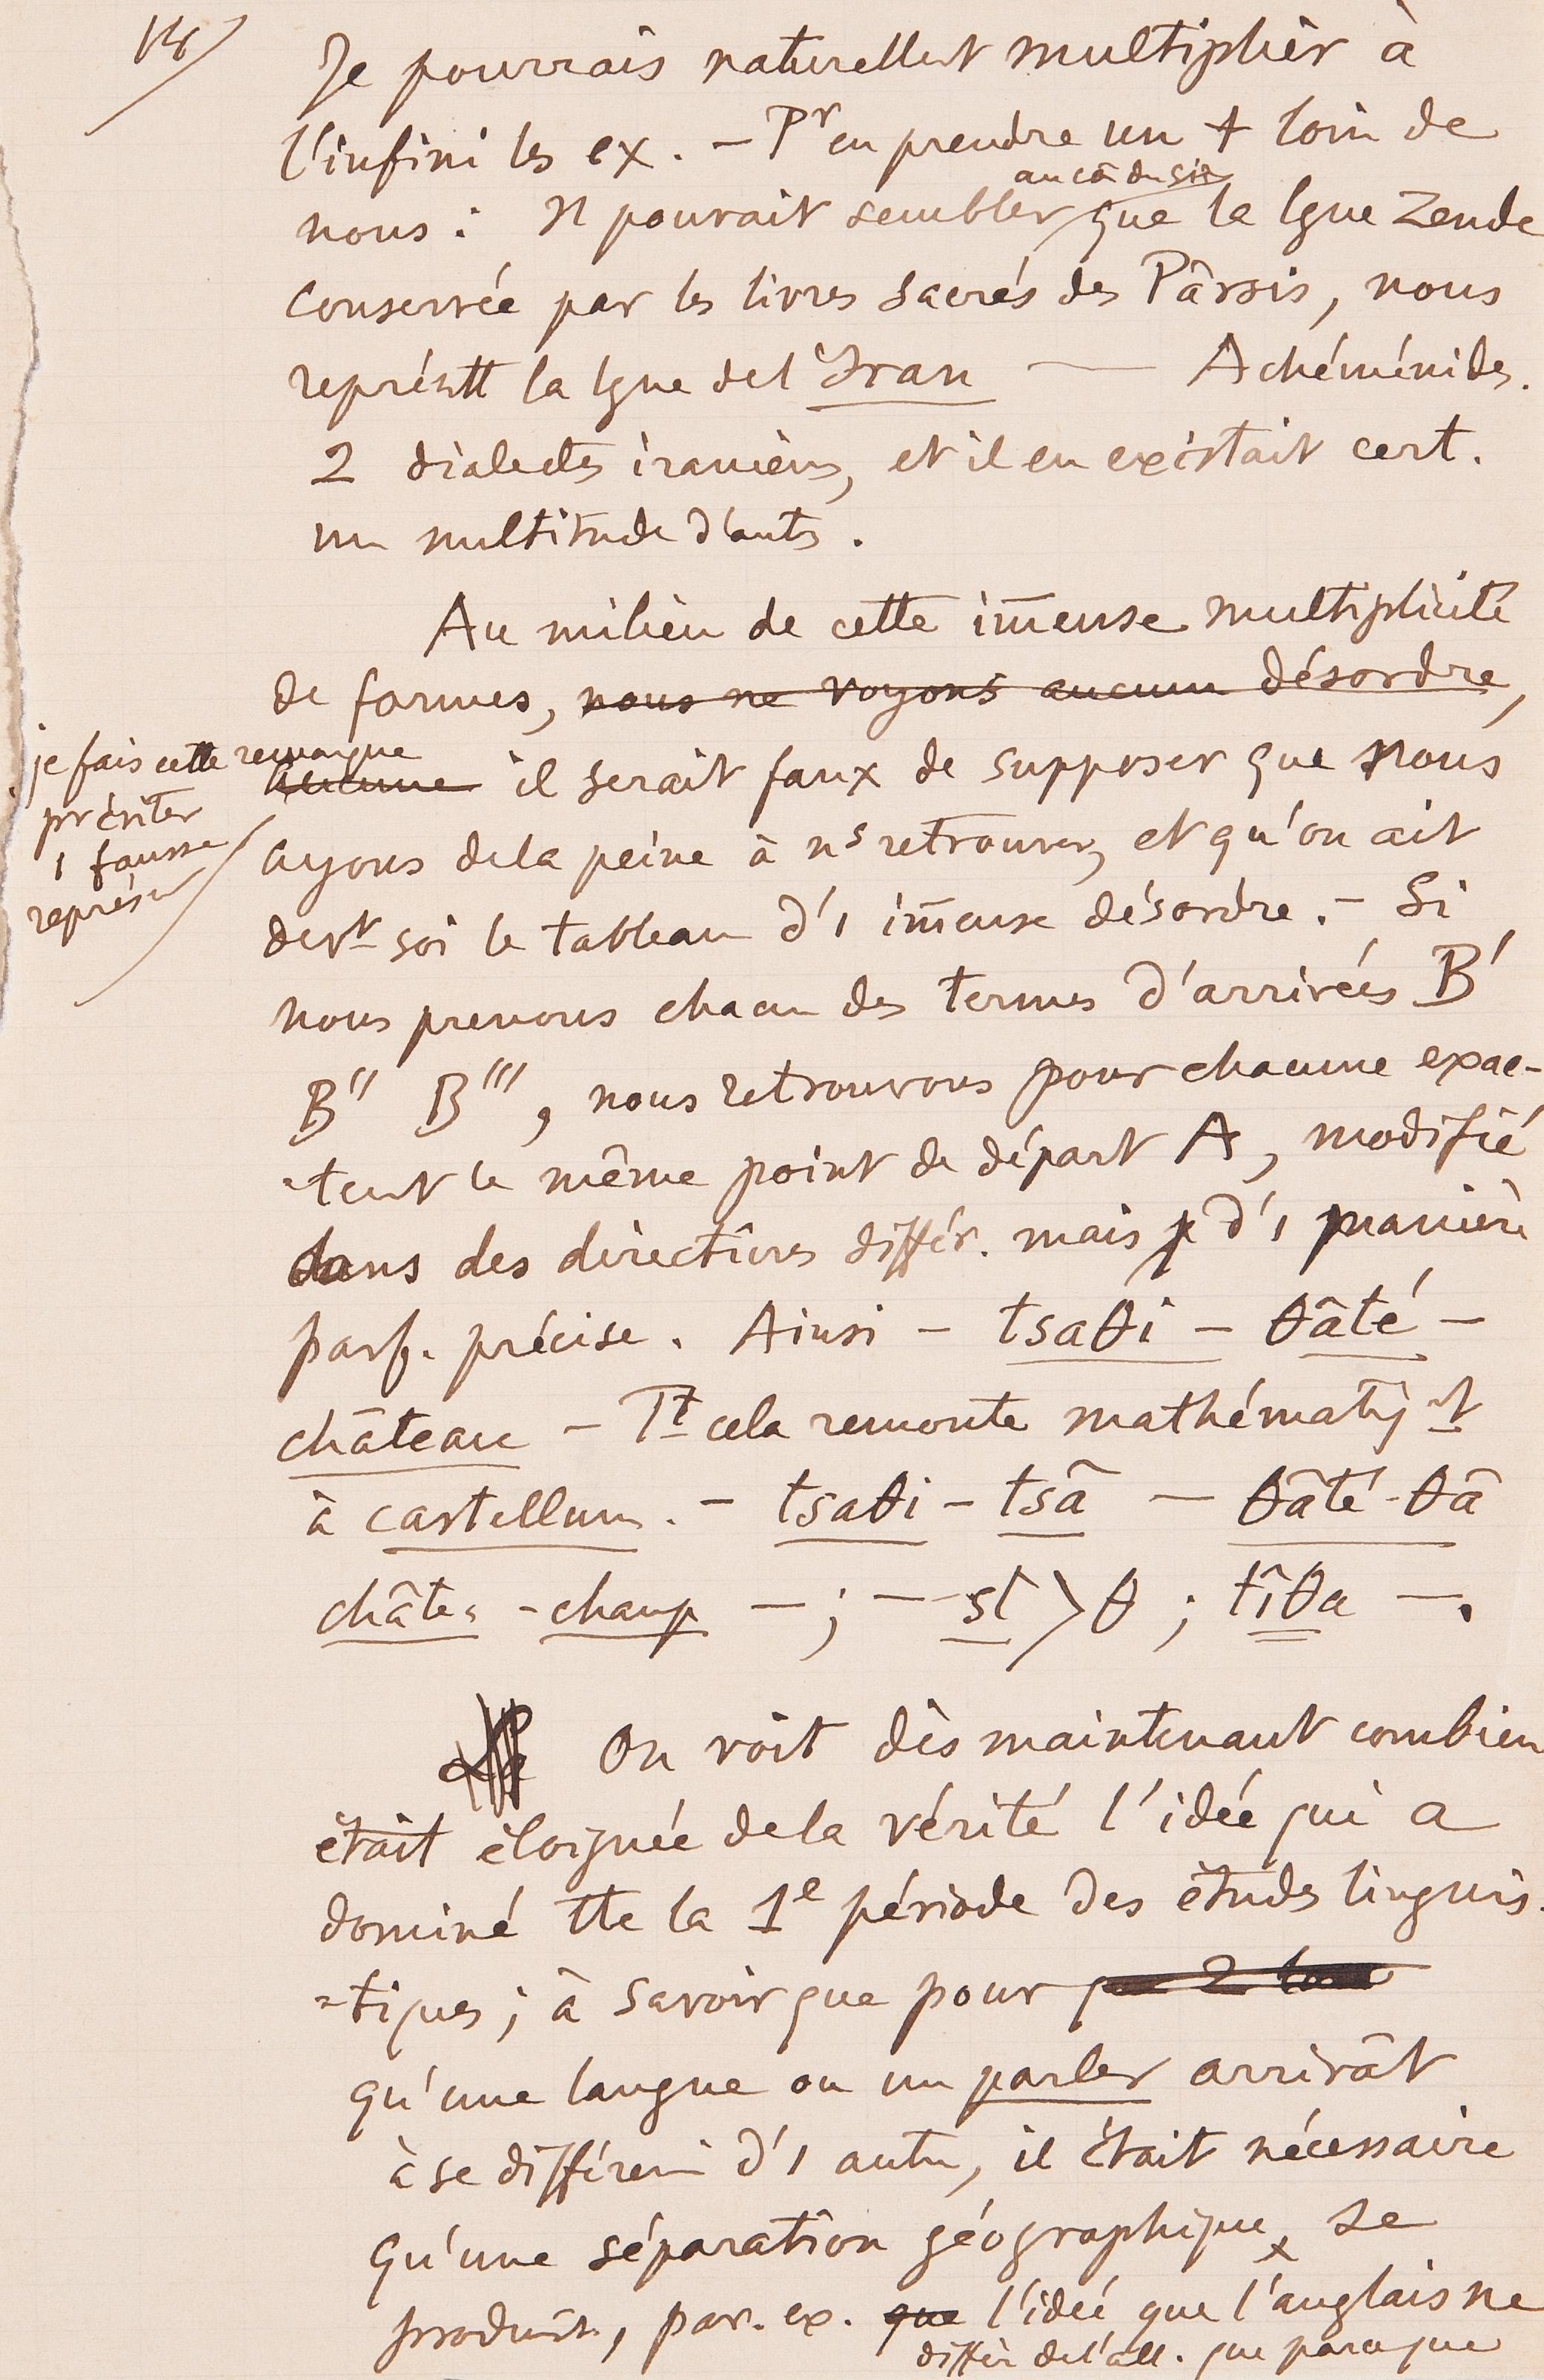 14/
Je pourrais naturellent multiplier à
l'infini les ex. – Pr en prendre un + loin de
nous : Il pouvait sembler que la lgue Zende
conservée par les livres sacrés des Pârsis, nous
représtt la lgue de l'Iran — Achéménides.
2 dialectes iraniens, et il en existait cert.
un multitude d'auts.
Au milieu de cette im̄ense multiplicité
de formes, nous ne voyons aucun désordre,
aucune il serait faux de supposer que nous
je fais cette remarque
pr éviter
1 fausse
ayons de la peine à ns retrouver, et qu'on ait
devt soi le tableau d'1 im̄ense désordre. – Si
nous prenons chacun des termes d'arrivées B'
B'' B''', nous retrouvons pour chacune exac-
-tent le même point de départ A, modifié
dans des directions différ. mais d'1 manière
parf. précise. Ainsi – tsaθi – θâté –
château – Tt cela remonte mathématiqt
à castellum. – tsaθi – tsâ – θâté - θâ
chât. - champ — ; — st > θ ; tîθa —.
On voit dès maintenant combien
était éloignée de la vérité l'idée qui a
dominé tte la 1e période des études linguis-
-tiques ; à savoir que pour
qu'une langue ou un parler arrivât
à se différenc. d'1 autre, il était nécessaire
qu'une séparation géographique se
produisît, par. ex. que l'idée que l'anglais ne
diffère de l'all. que parce que